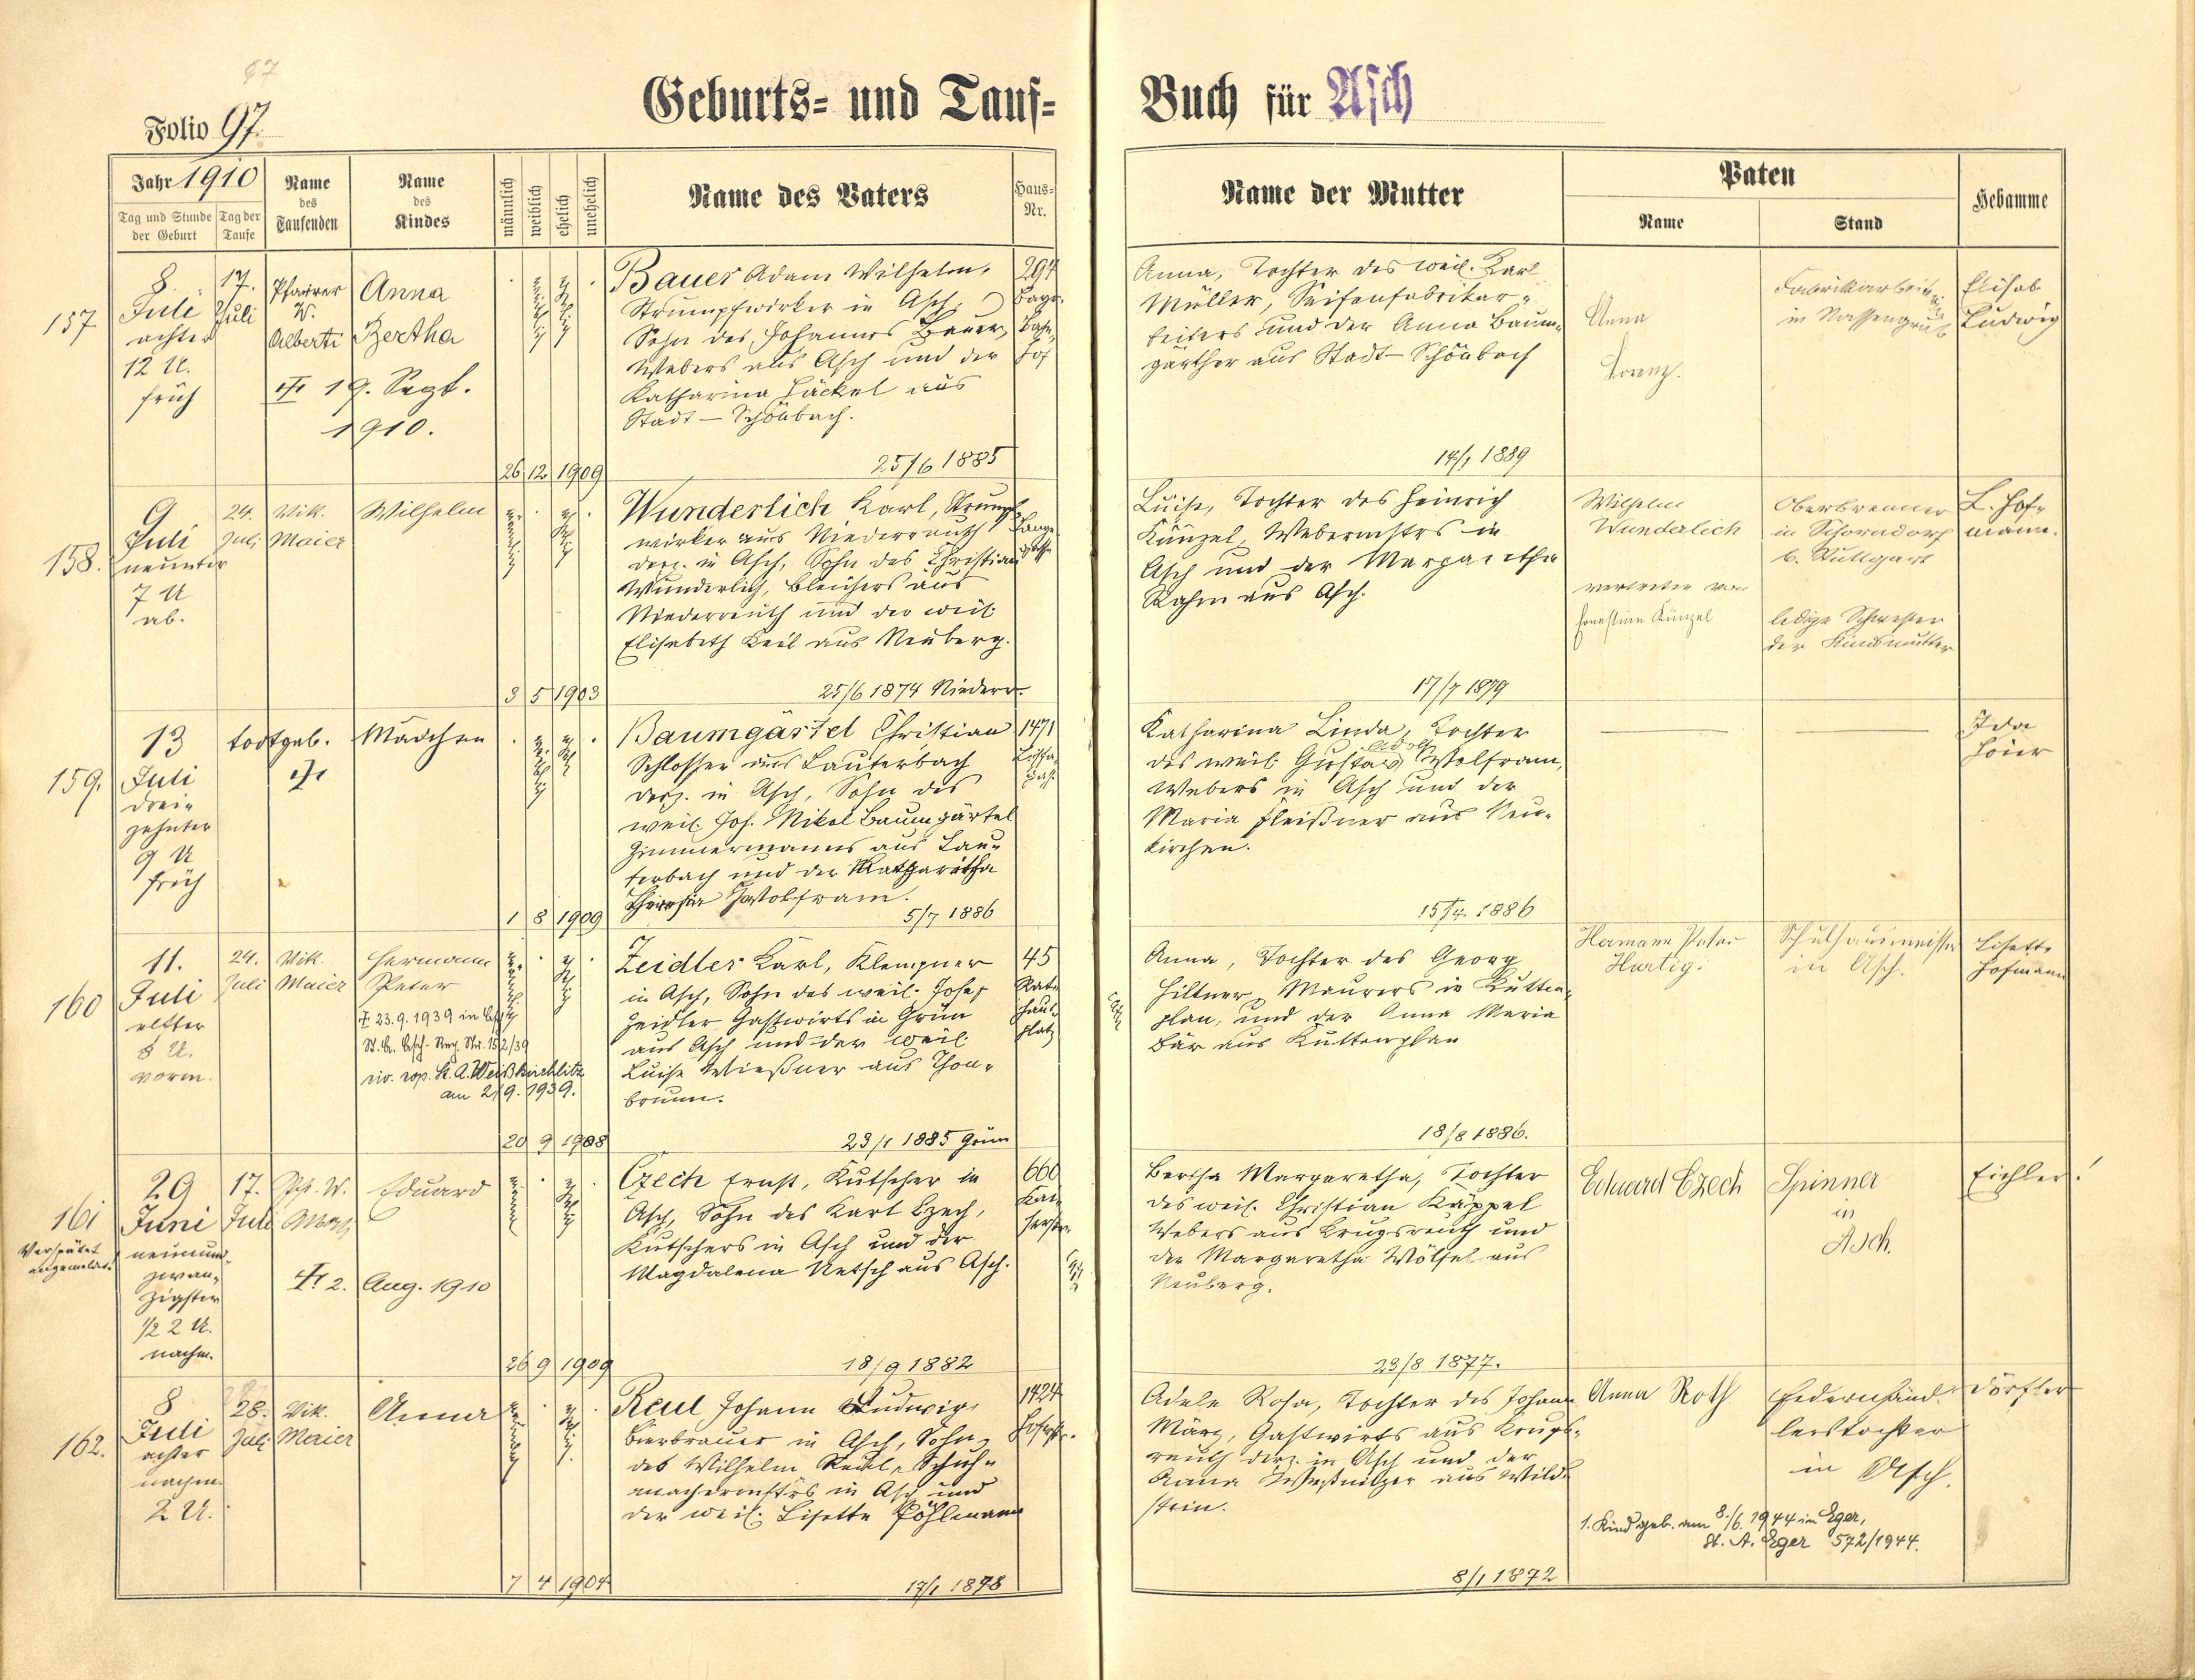 97
Folio 97.
Geburts- und Tauf-
Buch für Asch
Jahr 1910
Tag und Stunde der Geburt
Tag der Taufe
Name des Taufenden
Name des Kindes
männlich
weiblich
ehelich
unehelich
Name des Vaters
Haus-Nr.
Name der Mutter
Paten
Name
Stand
Hebamme
157
8.
Juli
achter
12 U.
früh
17.
Juli
Pfarrer
W.
Alberti
Anna
Bertha
19. Sept.
1910.
weiblich
ehelich
26 12 1909
Bauer Adam Wilhelm,
Strumpfwirker in Asch,
Sohn des Johannes Bauer,
Webers aus Asch und der
Katharina Häckel aus
Stadt-Schönbach.
25/6 1885
294
Bayr.
Bahn-
hof
Anna, Tochter des weil. Karl
Müller, Seifenfabrikar-
beiters und der Anna Baum-
gärther aus Stadt-Schönbach
14/1 1889
Anna
Lorenz.
Fabrikarbeiterin
in Nassengrub
Elisab
Ludwig
158.
9
Juli
neunter
7 U
ab.
24.
Juli
Vik.
Maier
Wilhelm
männlich
ehelich
3 5 1903
Wunderlich Karl, Strumpf-
wirker aus Niederreuth
derz. in Asch, Sohn des Christian
Wunderlich, Bleichers aus
Niederreuth und der weil.
Elisabeth Keil aus Neuberg.
25/6 1874 Niederr.
Lange-
gasse
Luise, Tochter des Heinrich
Künzel, Webermstrs in
Asch und der Margaretha
Rahm aus Asch.
17/7 1879
Wilhelm
Wunderlich
vertreten von
Ernestine Künzel
Oberbrenner
in Schorndorf
b. Stuttgart
ledige Schwester
der Kindsmutter
L. Hof-
mann.
159.
13
Juli
drei-
zehnter
9 U
früh
todtgeb.
Mädchen
weiblich
ehelich
1 8 1909
Baumgärtel Christian
Schlosser aus Lauterbach
derz. in Asch, Sohn des
weil. Joh. Nikol Baumgärtel
Zimmermanns aus Lau-
terbach und der Margaretha
Theresia Wolfram.
5/7 1886
1471
Katharina Linda, Tochter
des weil. Gustav Adolf Wolfram,
Webers in Asch und der
Maria Fleißner aus Neu-
kirchen.
15/4. 1886
Ida
Heier
160
11.
Juli
elfter
8 U.
vorm.
24.
Juli
Vik.
Maier
Hermann
Peter
23.9.1939 in Asch
St. A. Asch - Reg. Nr. 152/39
civ. cop. St. A. Weißkirchlitz
am 2/9. 1939.
männlich
ehelich
20 9 1908
Zeidler Karl, Klempner
in Asch, Sohn des weil. Josef
Zeidler Gastwirts in Grün
aus Asch und der weil.
Luise Wießner aus Thon-
brunn.
23/1 1885 Grün
45
Rat-
haus-
platz
Anna, Tochter des Georg
Hiltner, Maurers in Kutten-
plan, und der Anna Maria
Bär aus Kuttenplan
18/8 1886.
Hermann Peter
Hartig.
Schulhausmeister
in Asch.
Lisette
Hofmann
161
Verspätet
angemeldet.
29
Juni
neunund-
zwan-
zigster
1/2 2 U.
nachm.
17.
Juli
Pf. W.
Eduard
2. Aug. 1910
männl.
ehelich
26 9 1909
Czech Ernst, Kutscher in
Asch, Sohn des Karl Czech,
Kutschers in Asch und der
Magdalena Netsch aus Asch.
18/9 1882
660
Kai-
serstr.
Bertha Margaretha, Tochter
des weil. Christian Käppel
Webers aus Krugsreuth und
der Margaretha Wölfel aus
Neuberg.
23/8 1877.
Eduard Czech
Spinner
in
Asch.
Eichler.
162.
8
Juli
achter
nachm.
2 U.
28.
Juli
Vik.
Maier
Anna
ehelich
7 4 1904
Reul Johann Ludwig,
Bierbrauer in Asch, Sohn
des Wilhelm Reul, Schuh-
machermstrs in Asch und
der weil. Lisette Pöhlmann
17/1 1878
1424
Hoferstr.
Adele Rosa, Tochter des Johann
März, Gastwirts aus Krugs-
reuth derz. in Asch und der
Anna Weßnitzer aus Wild-
stein.
8/1 1872
Anna Roth
Federnhänd-
lerstochter
in Asch.
1. Kind geb. am 8./6. 1944 in Eger,
St. A. Eger 572/1944.
Dörfler